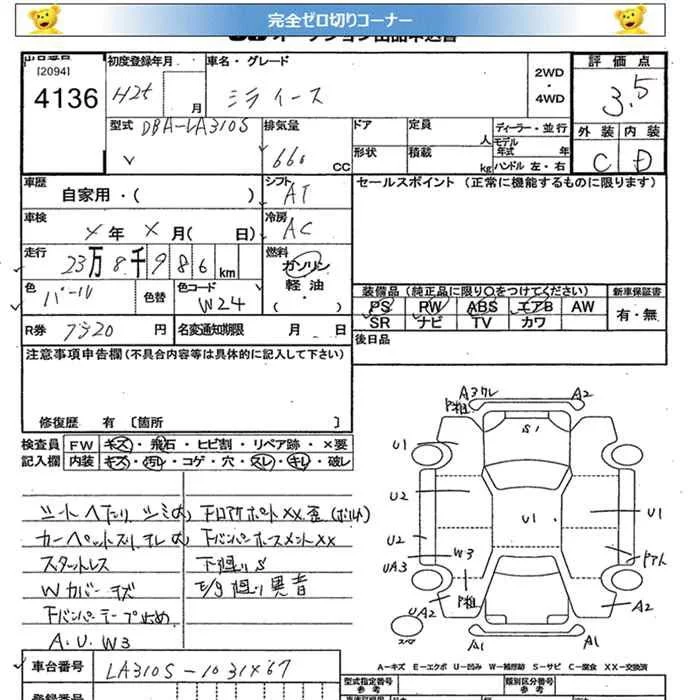 完全ゼロ切りコーナー
[2094]
4136
初度登録年月
H25 月
車名・グレード
ミライース
2WD
・
4WD
評価点
3.5
型式
DBA-LA310S
排気量
660 CC
ドア
定員 人
形状
積載 kg
ディーラー・並行
モデル年式 年
ハンドル 左・右
外装 内装
C D
車歴
自家用・( )
シフト
AT
セールスポイント (正常に機能するものに限ります)
車検
X年 X月( 日)
冷房
AC
走行
23万8千986km
燃料
ガソリン
軽油
・( )
色
パール
色替
色コード
W24
装備品 (純正品に限り○をつけてください)
新車保証書
PS RW ABS エアB AW
SR ナビ TV カワ
有・無
R券 7320 円
名変通知期限 月 日
後日品
注意事項申告欄 (不具合内容等は具体的に記入して下さい)
修復歴 有 [箇所 ]
検査員 FW キズ・飛石・ヒビ割・リペア跡・×要
記入欄 内装 キズ・汚レ・コゲ・穴・スレ・キレ・破レ
シートへたり シミ大
カーペットスリキレ大
スタートレス
Wカバーキズ
FバンパーテープLめ
A.U.W3
下廻りS
異音
A3ワレ
A2
S1
U1
U2
U1
U1
U2
UA3
W3
UA2
A2
A1
A1
A-キズ E-エクボ U-凹み W-補修跡 S-サビ C-腐食 XX-交換済
車台番号
LA310S-1031467
型式指定番号
参考
類別区分番号
参考
登録番号